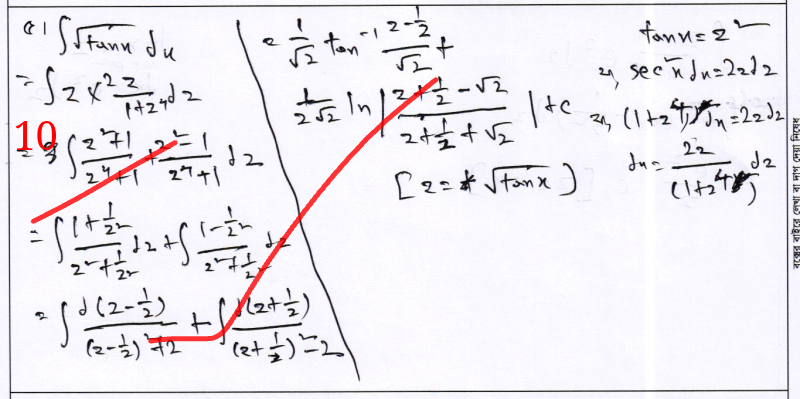 c। ∫√tanx dx
= ∫ z × 2z/(1+z⁴) dz
10
= ∫ (z²+1)/(z⁴+1) + (z²-1)/(z⁴+1) dz
= ∫ (1+1/z²)/(z²+1/z²) dz + ∫ (1-1/z²)/(z²+1/z²) dz
= ∫ d(z-1/z)/((z-1/z)²+2) + ∫ d(z+1/z)/((z+1/z)²-2)
= 1/√2 tan⁻¹ (z-1/z)/√2 +
1/2√2 ln |(z+1/z-√2)/(z+1/z+√2)| + c
[z = √tanx]
tanx = z²
বা, sec²x dx = 2z dz
বা, (1+z⁴) dx = 2z dz
dx = 2z/(1+z⁴) dz
বক্সের বাইরে লেখা বা দাগ দেয়া নিষেধ